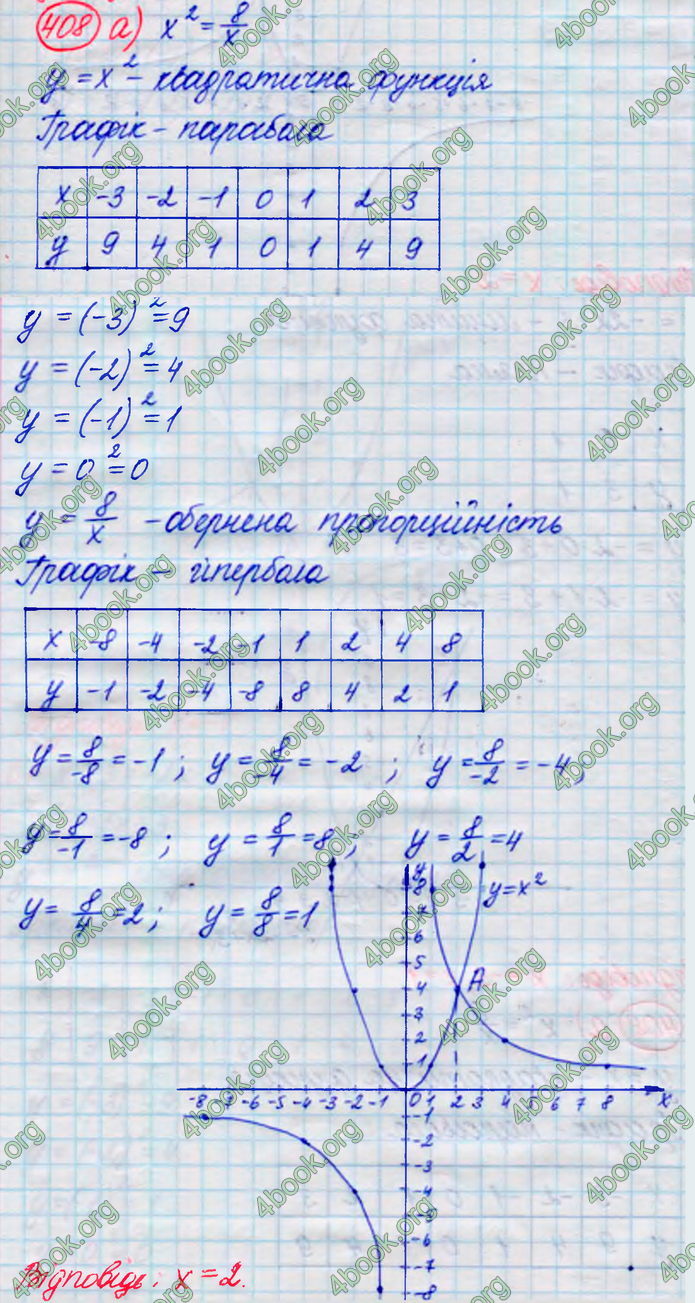 408 а) x² = 8/x
y = x² – квадратична функція
Графік – парабола
x -3 -2 -1 0 1 2 3
y 9 4 1 0 1 4 9
y = (-3)² = 9
y = (-2)² = 4
y = (-1)² = 1
y = 0² = 0
y = 8/x – обернена пропорційність
Графік – гіпербола
x -8 -4 -2 -1 1 2 4 8
y -1 -2 -4 -8 8 4 2 1
y = 8/-8 = -1 ; y = 8/-4 = -2 ; y = 8/-2 = -4 ;
y = 8/-1 = -8 ; y = 8/1 = 8 ; y = 8/2 = 4
y = 8/4 = 2 ; y = 8/8 = 1
y
y = x²
8
7
6
5
4 A
3
2
1
-8 -7 -6 -5 -4 -3 -2 -1 0 1 2 3 4 5 6 7 8 x
-1
-2
-3
-4
-5
-6
-7
-8
Відповідь: x = 2.
4book.org